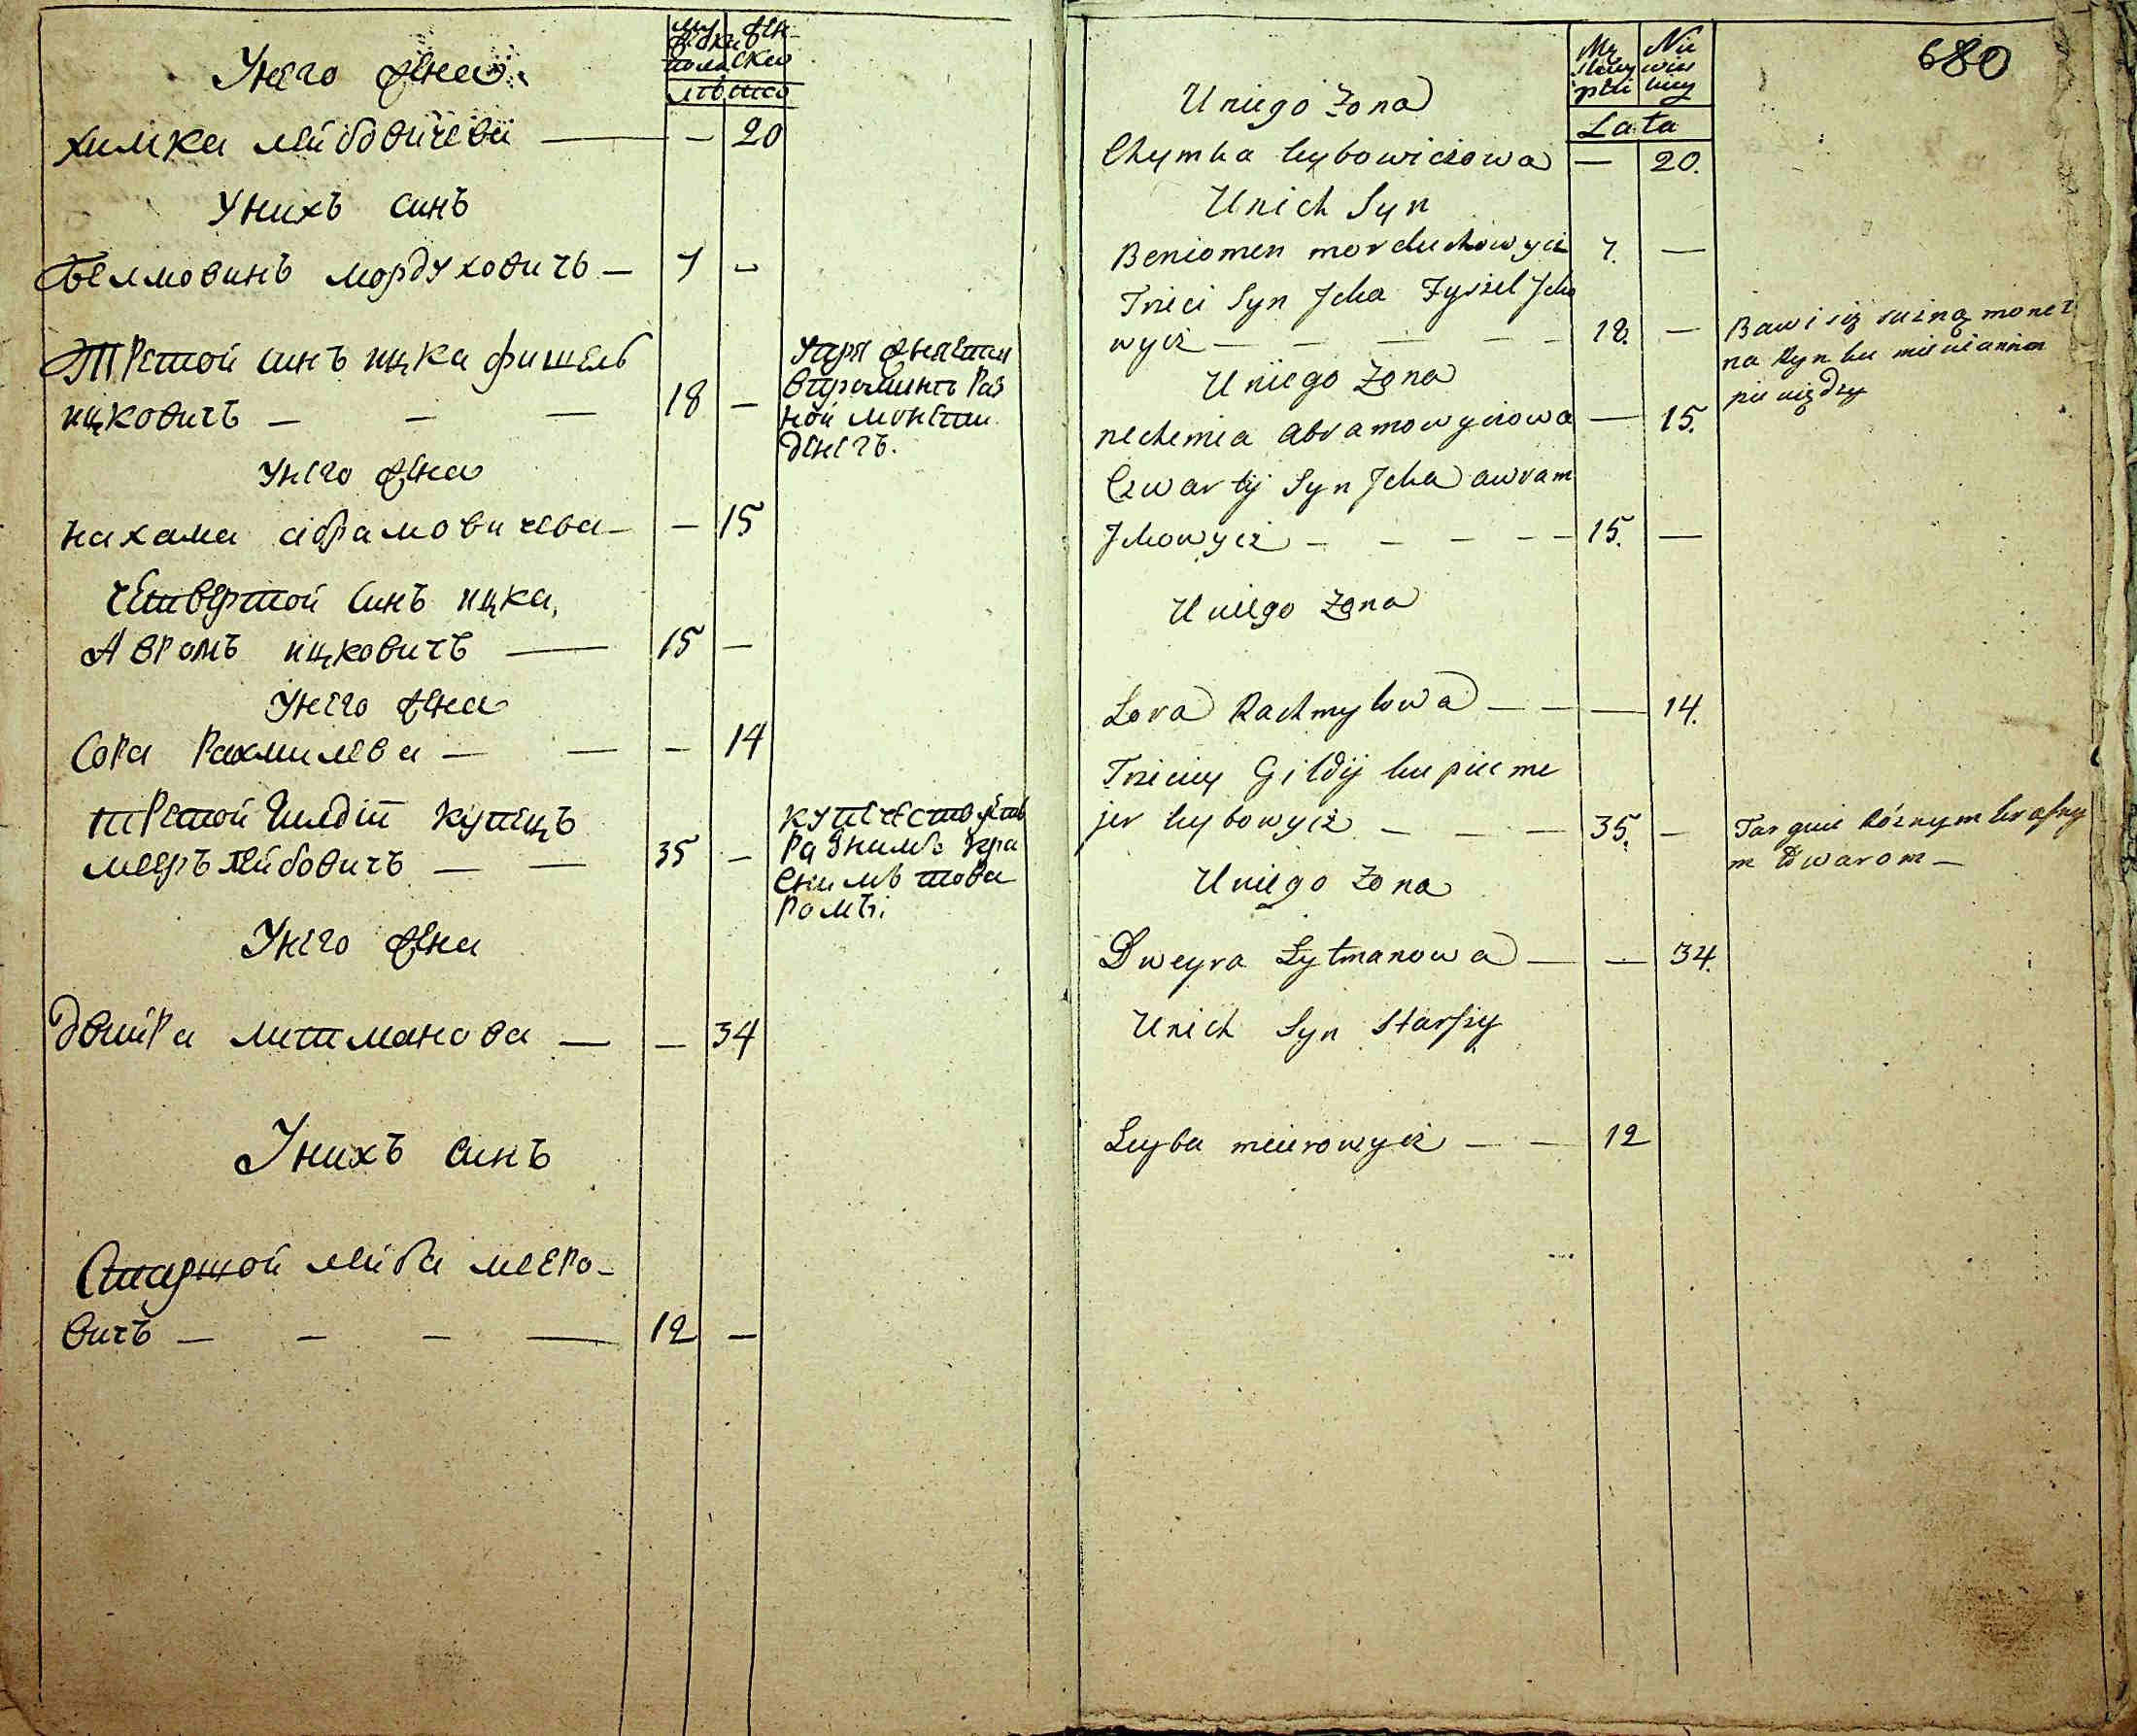 У него жена
Химка лейбовичева — — 20
У нихъ синъ
Белмовинъ мордуховичъ — 7 —
Третой синъ ицка фишель
ицковичъ — — — 18 —
ной монети
денегъ.
У него жена
Нахама абрамовичева — — 15
Четвертой синъ ицка,
Авромъ ицковичъ — 15 —
У него жена
Сора Рахмилева — — — 14
Третой гилдіи купецъ
мееръ лейбовичъ — — 35 —
Разнимъ кра
снимъ това
ромъ.
У него жена
Двейра литманова — — 34
У нихъ синъ
Старшой лейба мееро-
вичъ — — — — 12 —
680
Mę Nie
skiey wies
płci ciey
Lata
U niego Żona
Chymka leybowiczowa — 20.
U nich Syn
Beniomen morduchowycz 7. —
Trzeci Syn Jcka Fyszel Jcko
wycz — — — — — 18. —
Bawi się rużną monet
na Rynku mienianiem
pieniędzy
U niego Żona
nechemia abramowyczowa — 15.
Czwartÿ Syn Jcka awram
Jckowycz — — — — 15. —
U niego Żona
Sora Rachmylowa — — — 14.
Trzeciey Gildÿ kupiec me
jer leybowycz — — — 35. —
Targuie Róznym krasny
m towarom —
U niego Żona
Dweyra Lytmanowa — — 34.
U nich Syn Starszy
Leyba meierowycz — — 12